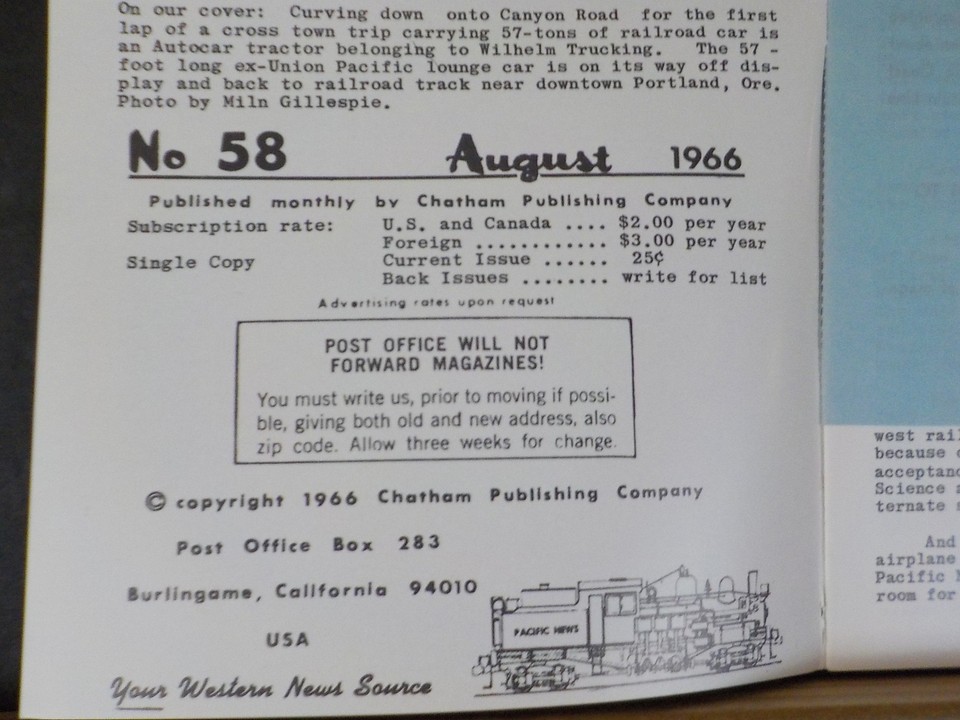 On our cover: Curving down onto Canyon Road for the first
lap of a cross town trip carrying 57-tons of railroad car is
an Autocar tractor belonging to Wilhelm Trucking. The 57 -
foot long ex-Union Pacific lounge car is on its way off dis-
play and back to railroad track near downtown Portland, Ore.
Photo by Miln Gillespie.
No 58 August 1966
Published monthly by Chatham Publishing Company
Subscription rate: U.S. and Canada .... $2.00 per year
Foreign ............ $3.00 per year
Single Copy Current Issue ...... 25¢
Back Issues ........ write for list
Advertising rates upon request
POST OFFICE WILL NOT
FORWARD MAGAZINES!
You must write us, prior to moving if possi-
ble, giving both old and new address, also
zip code. Allow three weeks for change.
© copyright 1966 Chatham Publishing Company
Post Office Box 283
Burlingame, California 94010
USA
PACIFIC NEWS
Your Western News Source
west rail
because
acceptanc
Science
ternate
And
airplane
Pacific
room for